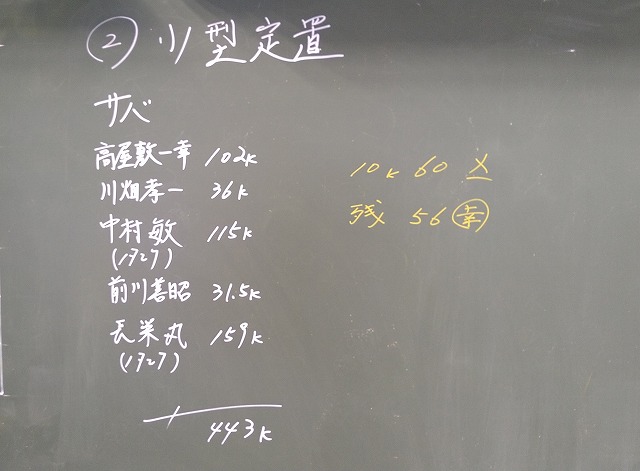 ② 小型定置
サバ
髙屋敷一幸 102K
川畑孝一 36K
中村敏 115K
(1727)
前川善昭 31.5K
長栄丸 159K
(1727)
443K
10K 60 メ
残 56 幸